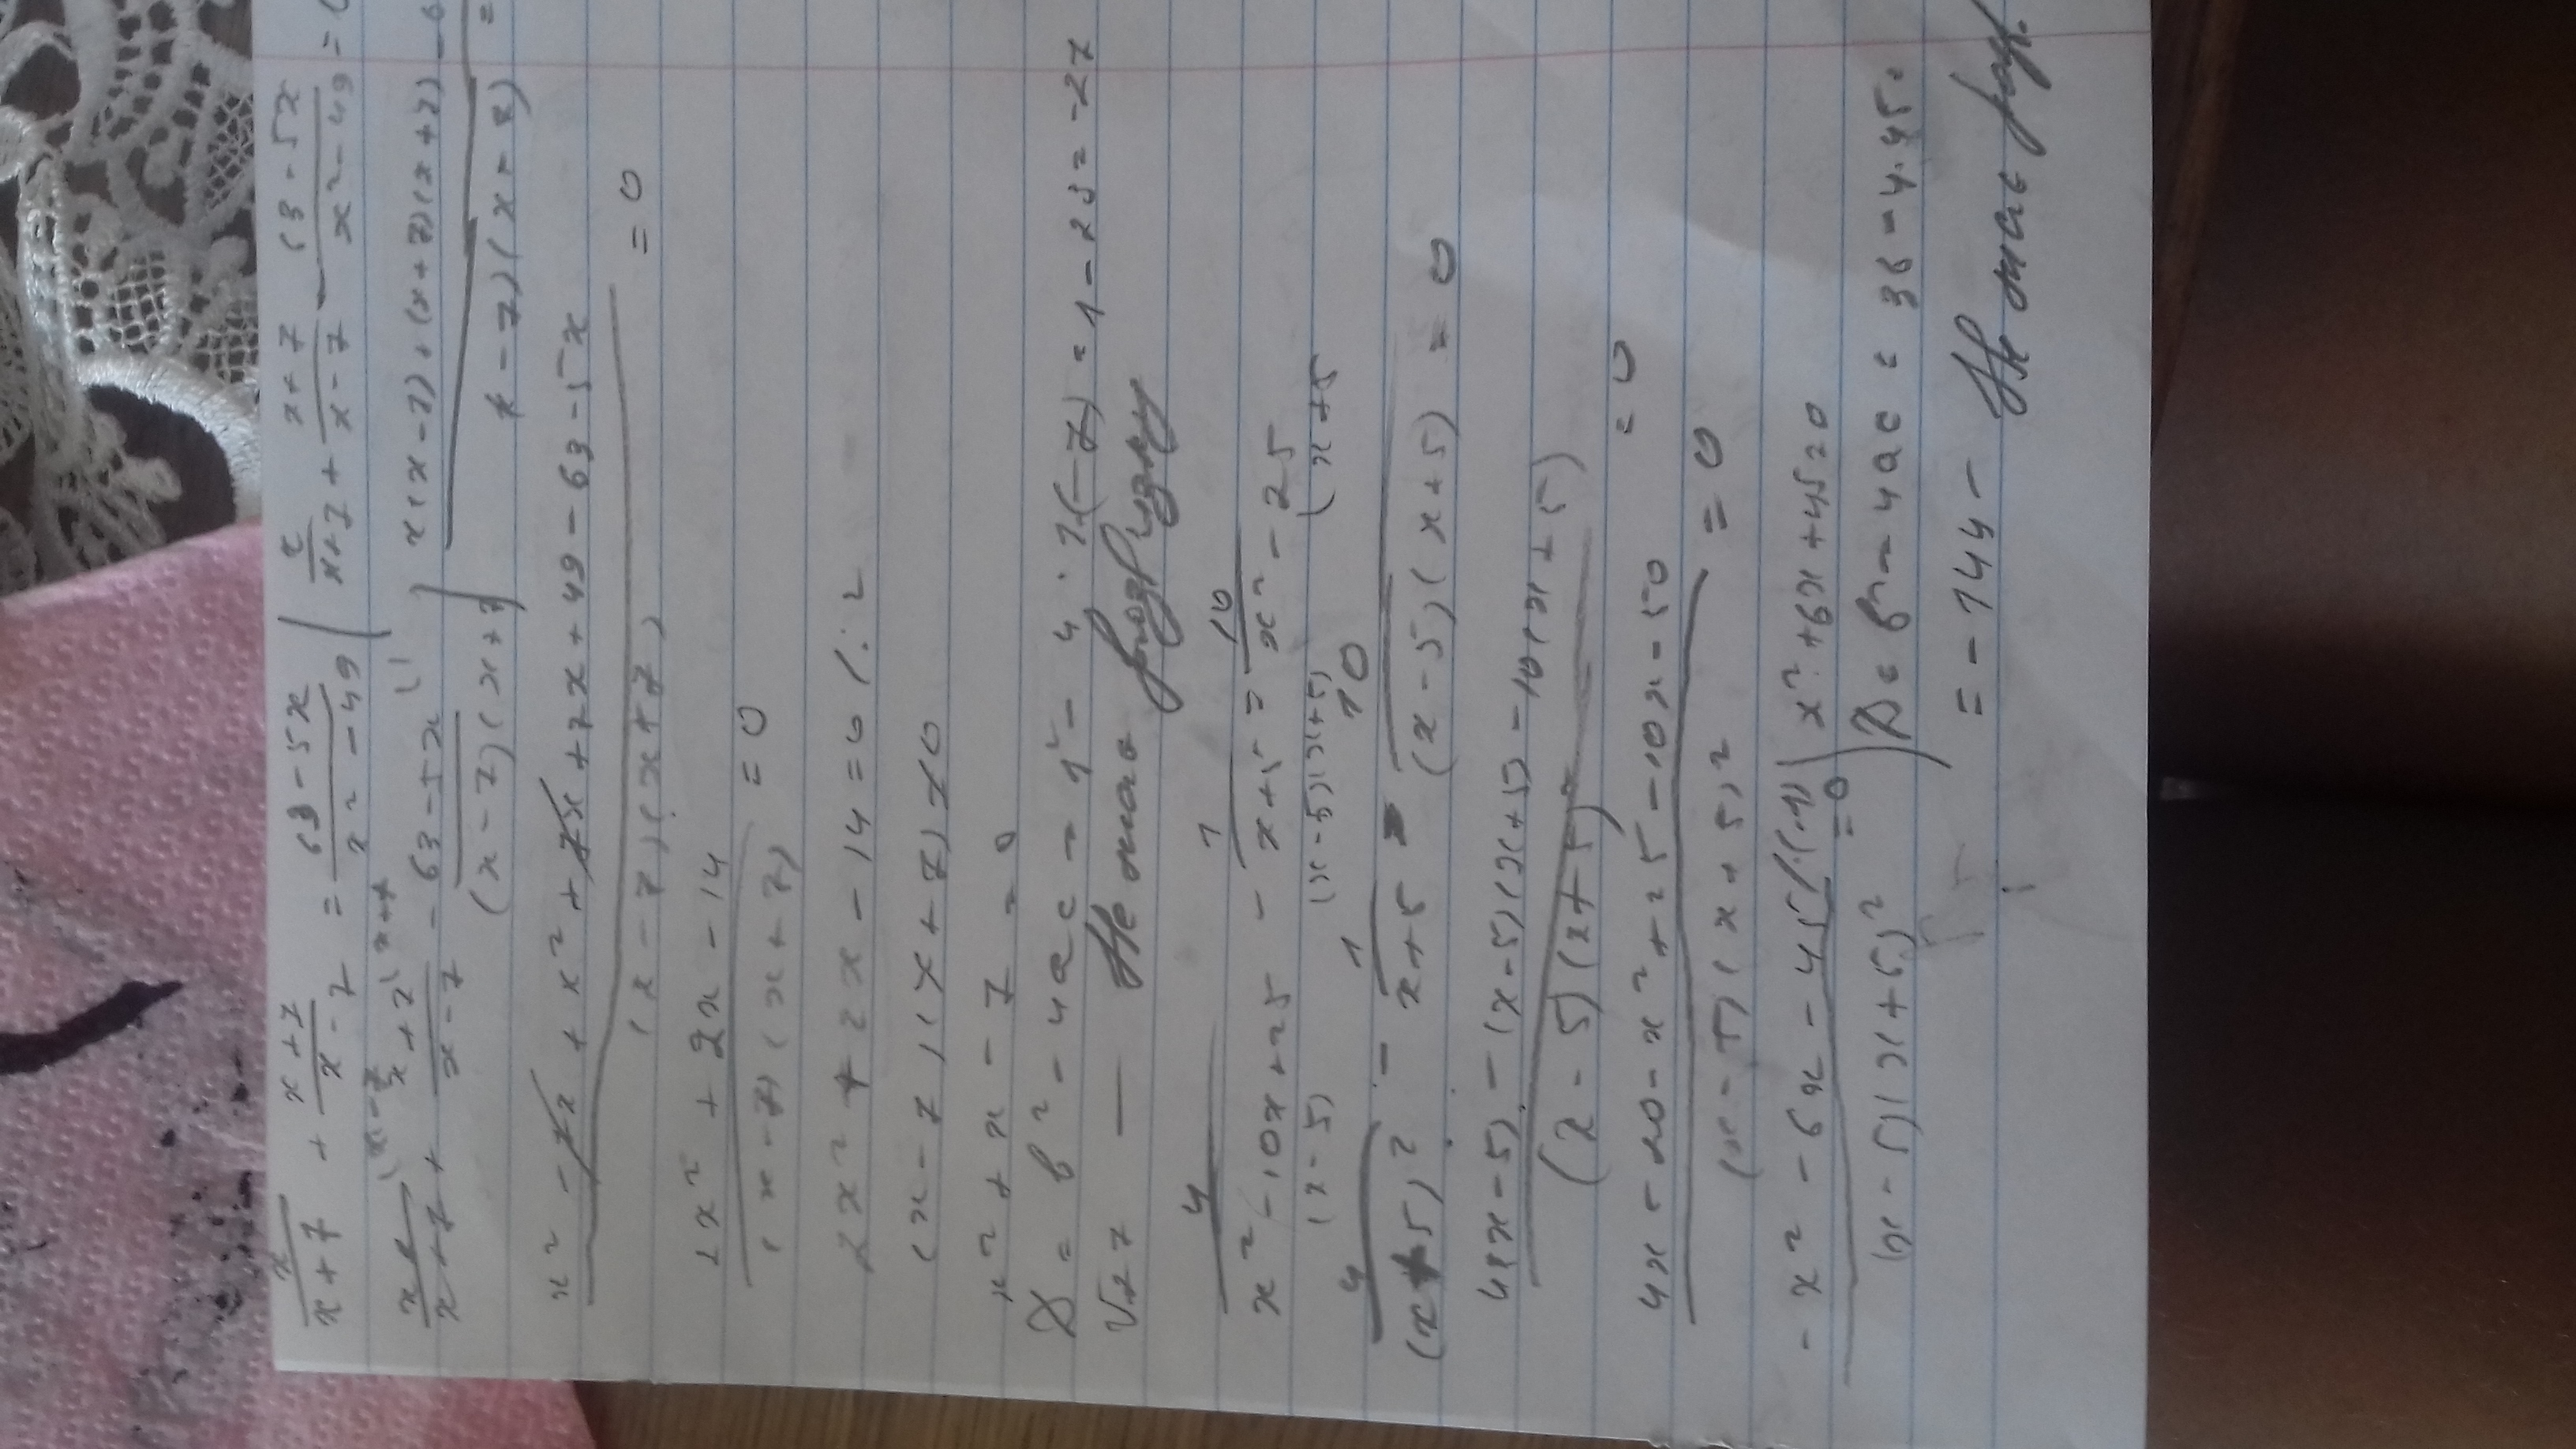 x/(x+7) + (x+7)/(x-7) = (63-5x)/(x²-49) | x/(x+7) + (x+7)/(x-7) - (63-5x)/(x²-49) =
x/(x+7) + (x+7)/(x-7) - (63-5x)/((x-7)(x+7)) | x(x-7)+(x+7)(x+7)-6
x² - 7x + x² + 7x + 7x + 49 - 63 - 5x
(x-7)(x+7) = 0
2x² + 2x - 14
(x-7)(x+7) = 0
2x² + 2x - 14 = 0 /:2
(x-7)(x+7) ≠ 0
x² + x - 7 = 0
D = b² - 4ac = 1² - 4·1(-7) = 1 - 28 = -27
√27 — Не має розвʼязку
4/(x²-10x+25) - 1/(x+5) = 10/(x²-25)
(x-5) (x-5)(x+5) (x+5
4/(x-5)² - 1/(x+5) - 10/((x-5)(x+5)) = 0
4(x-5) - (x-5)(x+5) - 10(x+5)
(x-5)(x+5)² = 0
4x - 20 - x² + 25 - 10x - 50
(x-5)(x+5)² = 0
-x² - 6x - 45 /·(-1) | x² + 6x + 45 = 0
(x-5)(x+5)² = 0 | D = b² - 4ac = 36 - 4·45 =
= -144 - Не має розв.